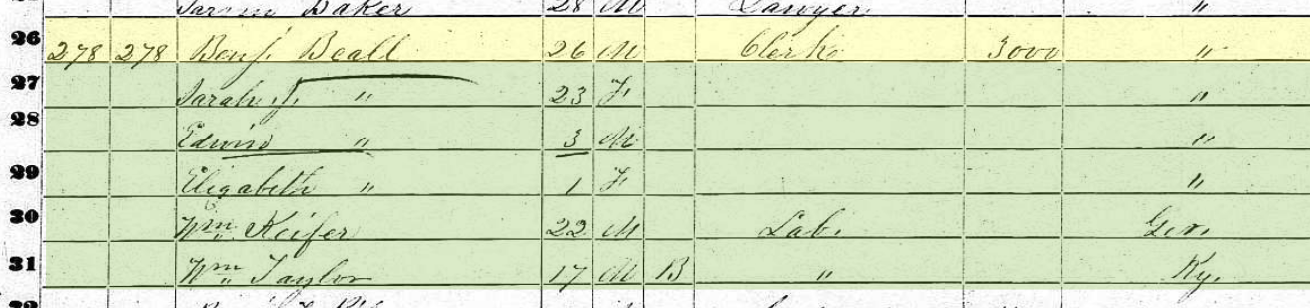 Baker 28 M Lawyer "
26 278 278 Benj. Beall 26 M Clerk 3000 "
27 Sarah J. " 23 F "
28 Edwin " 3 M "
29 Elizabeth " 1 F "
30 Wm. Keifer 22 M Lab. Ger.
31 Wm Taylor 17 M B " Ky.